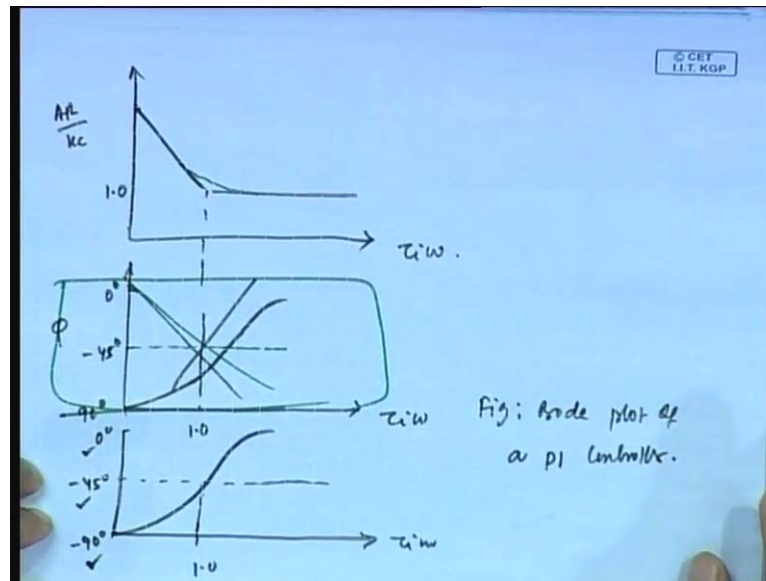 © CET
I.I.T. KGP
AR
Kc
1.0
τiω.
0°
φ
-45°
-90°
1.0
τiω
Fig: Bode plot of
a PI Controller.
0°
-45°
-90°
1.0
τiω